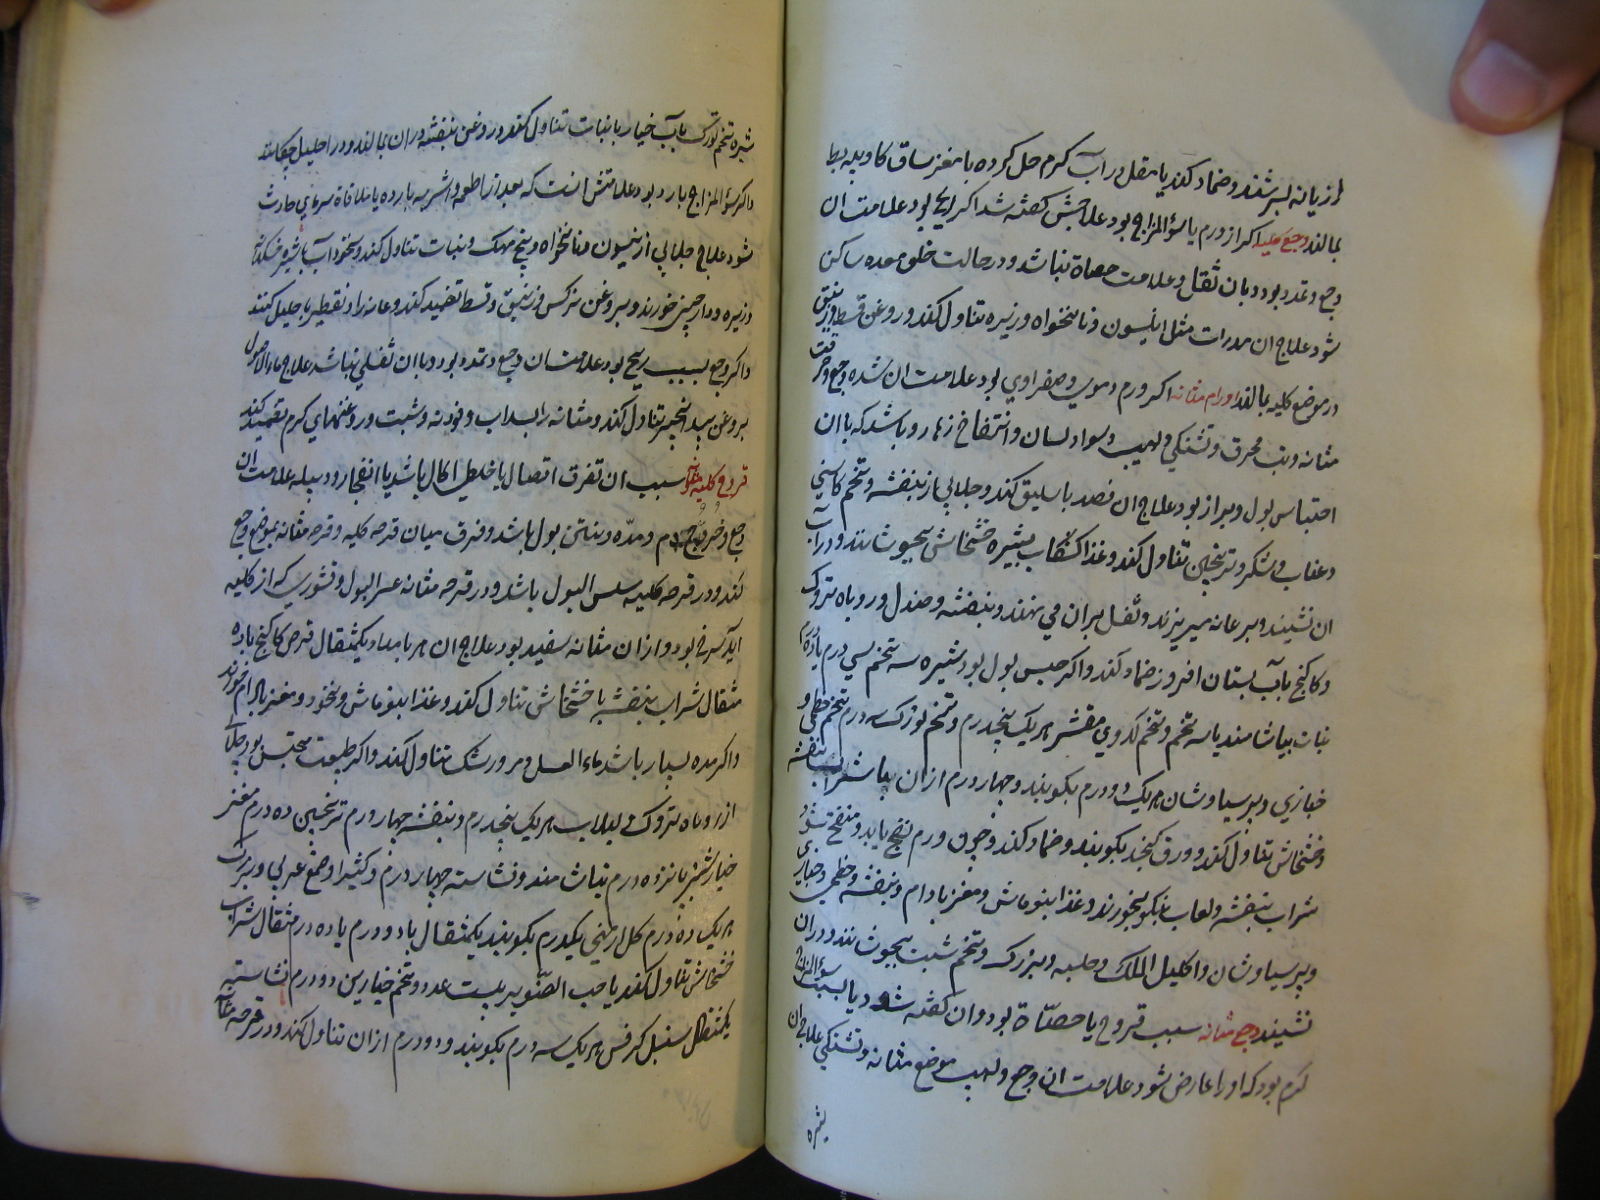 رازیانه بسرشند و ضماد کنند یا مقل در آب کرم حل کرده با مغز ساق کاو و پیه بط
بمالند وجع کلیه اکر از ورم یا سوٴ المزاج بود علاجش کفته شد اکر از ریح بود علامت ان
وجع و تمدد بود و با ان ثقل و علامت حصاة نباشد و در حالت خلو معده ساکن
شود علاج ان مدرات مثل انیسون و نانخواه و زیره تناول کنند و روغن قسط و زنبق
در موضع کلیه بمالند اورام مثانه اکر ورم دموی و صفراوی بود علامت ان شده وجع و حرقت
مثانه و تب محرق و تشنکی و لهیب و سواد لسان و انتفاخ زهار و باشد که با ان
احتباس بول و براز بود علاج ان فصد باسلیق کنند و جلابی از بنفشه و تخم کاسنی
و عناب و شکر و ترنجبین تناول کنند و غذا کشکاب بشیره خشخاش بجوشانند و در آب
ان نشینند و بر عانه میریزند و ثفل بران می نهند و بنفشه و صندل و روباه تروک
و کاکنج بآب بستان افروز ضماد کنند و اکر حبس بول بود بشیره سه تخم سی درم یا ده درم
نبات بیاشامند یا سه تخم و تخم کدوی مقشر هر یک پنجدرم و تخم تورک سه درم تخم خطمی و
خبازی و پرسیاوشان هر یک دو درم بکوبند و چهار درم ازان بیا شراب بنفشه
و خشخاش تناول کنند و ورق کنجد بکوبند و ضماد کنند و چون ورم نضج یابد و منفتح نشود
شراب بنفشه و لعاب بنکو بخورند و غذا بنوماش و مغز بادام و بنفشه و خطمی و خبازی
و پرسیاوشان و اکلیل الملک و حلبه و بزرک و تخم شبت بجوشانند و دران
نشینند وجع مثانه سبب قروح یا حصاة بود و ان کفته شد و یا بسبب سوٴ المزاج
کرم بود که او را عارض شود علامت ان وجع و لهیب موضع مثانه و تشنکی علاج ان
بشیره
شیره تخم تورک بآب خیار با نبات تناول کنند و روغن بنفشه دران بمالند و در احلیل چکانند
و اکر سوٴ المزاج بارد بود علامتش انست که بعد از اطعمه و اشربه بارده یا ملاقاة سرمای حادث
شود علاج جلابی از انیسون و نانخواه و بیخ مهک و نبات تناول کنند و نخوداب با شیره خسکدانه
و زیره و دارچینی خورند و بروغن نرکس و زنبق و قسط تضمید کنند و عانه را و تقطیر باحلیل کنند
و اکر وجع بسبب ریح بود علامت ان وجع و تمدد بود و با ان ثقلی نباشد علاج ماء الاصول
بروغن بید انجیر تناول کنند و مثانه را بسداب و فودنه و شبت و روغنهای کرم تضمید کنند
قروح کلیه و مثانه سبب ان تفرق اتصال یا خلطی اکال باشد یا انفجار دبیله علامت ان
وجع و خروج دم و مدّه و نتن بول باشد و فرق میان قرحه کلیه و قرحه مثانه بموضع وجع
کنند و در قرحه کلیه سلس البول باشد و در قرحه مثانه عسر البول و قشوری که از کلیه
آید سرخ بود و ازان مثانه سفید بود علاج ان هر بامداد یکمثقال قرص کاکنج با ده
مثقال شراب بنفشه یا خشخاش تناول کنند و غذا بنوماش و نخود و مغز بادام خورند
و اکر مده بسیار باشد ماء العسل و مرورشک تناول کنند و اکر طبیعت محتبس بود جلابی
از روباه تروک و لبلاب هر یک پنجدرم و بنفشه چهار درم ترنجبین ده درم مغز
خیارشنبر پانزده درم بیاشامند و نشاسته چهار درم و کثیرا و صمغ عربی و بزرک
هر یک ده درم کل ارمنی یکدرم بکوبند یکمثقال با دو درم با ده درم مثقال شراب
خشخاش تناول کنند یا حب الصنوبر بیست عدد و تخم خیارین دو درم نشاسته
یکمثقال سنبل کرفس هر یک سه درم بکوبند و دو درم ازان تناول کنند و در قرحه مثانه